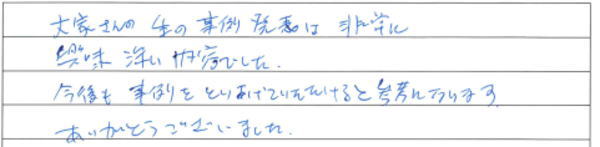 大家さんの生の事例発表は非常に
興味深い内容でした。
今後も事例をとりあげていただけると参考になります
ありがとうございました。